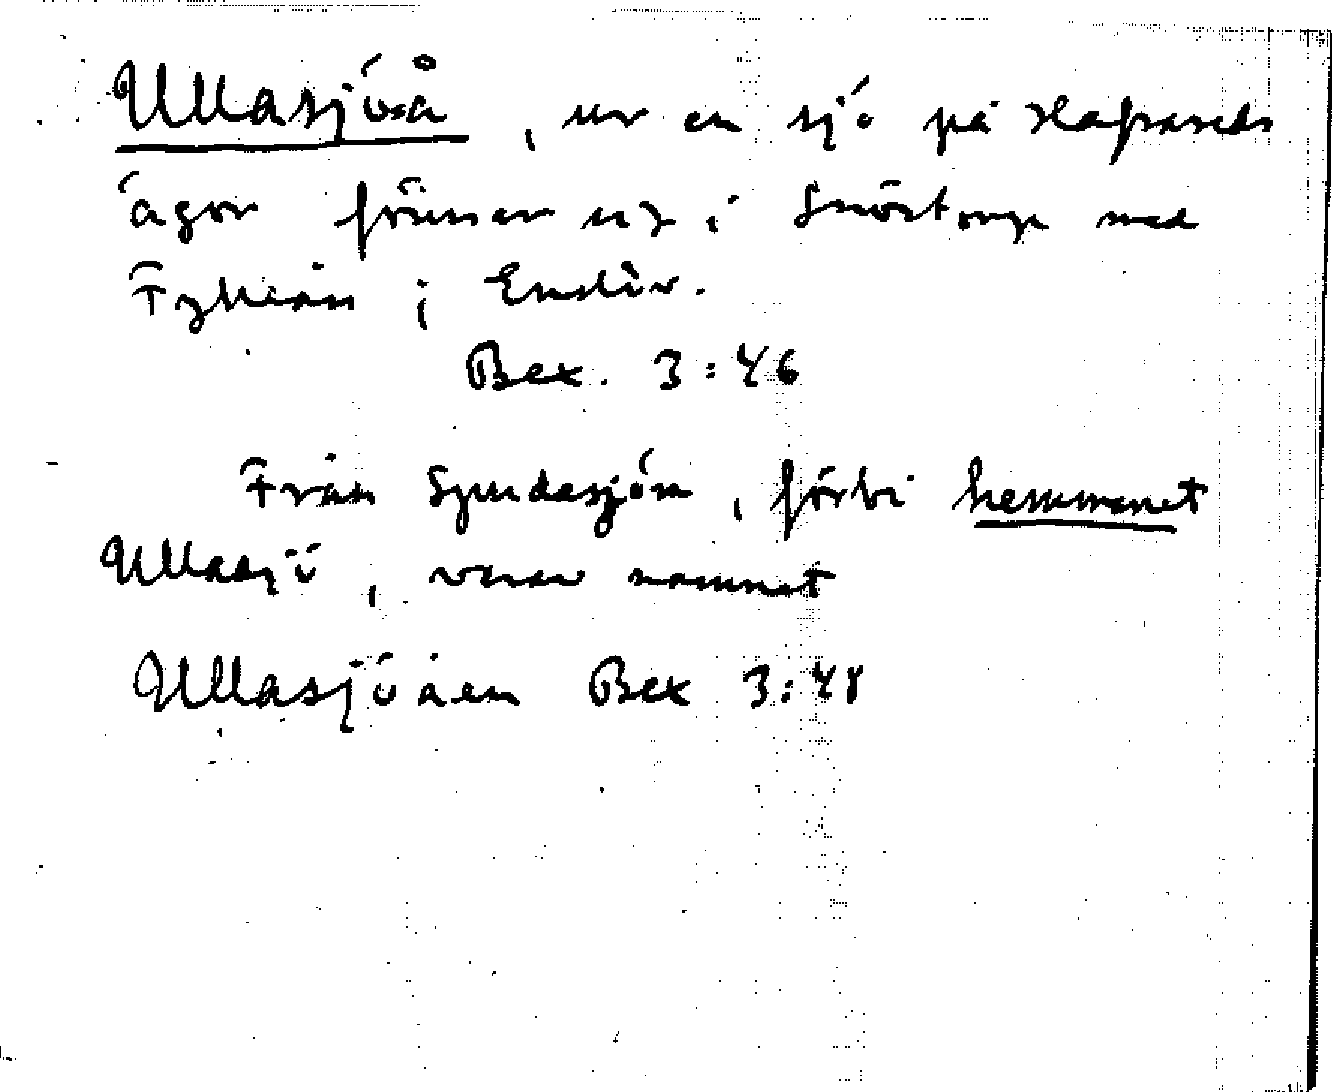 Ullasjöå, ur en sjö på
ägor förenar sig i Snöstorp med
Fylleån i Enslöv.
Bex. 3:46
Från Spndasjön, förbi hemmanet
Ullasjö, varav namnet
Ullasjöåen Bex 3:48